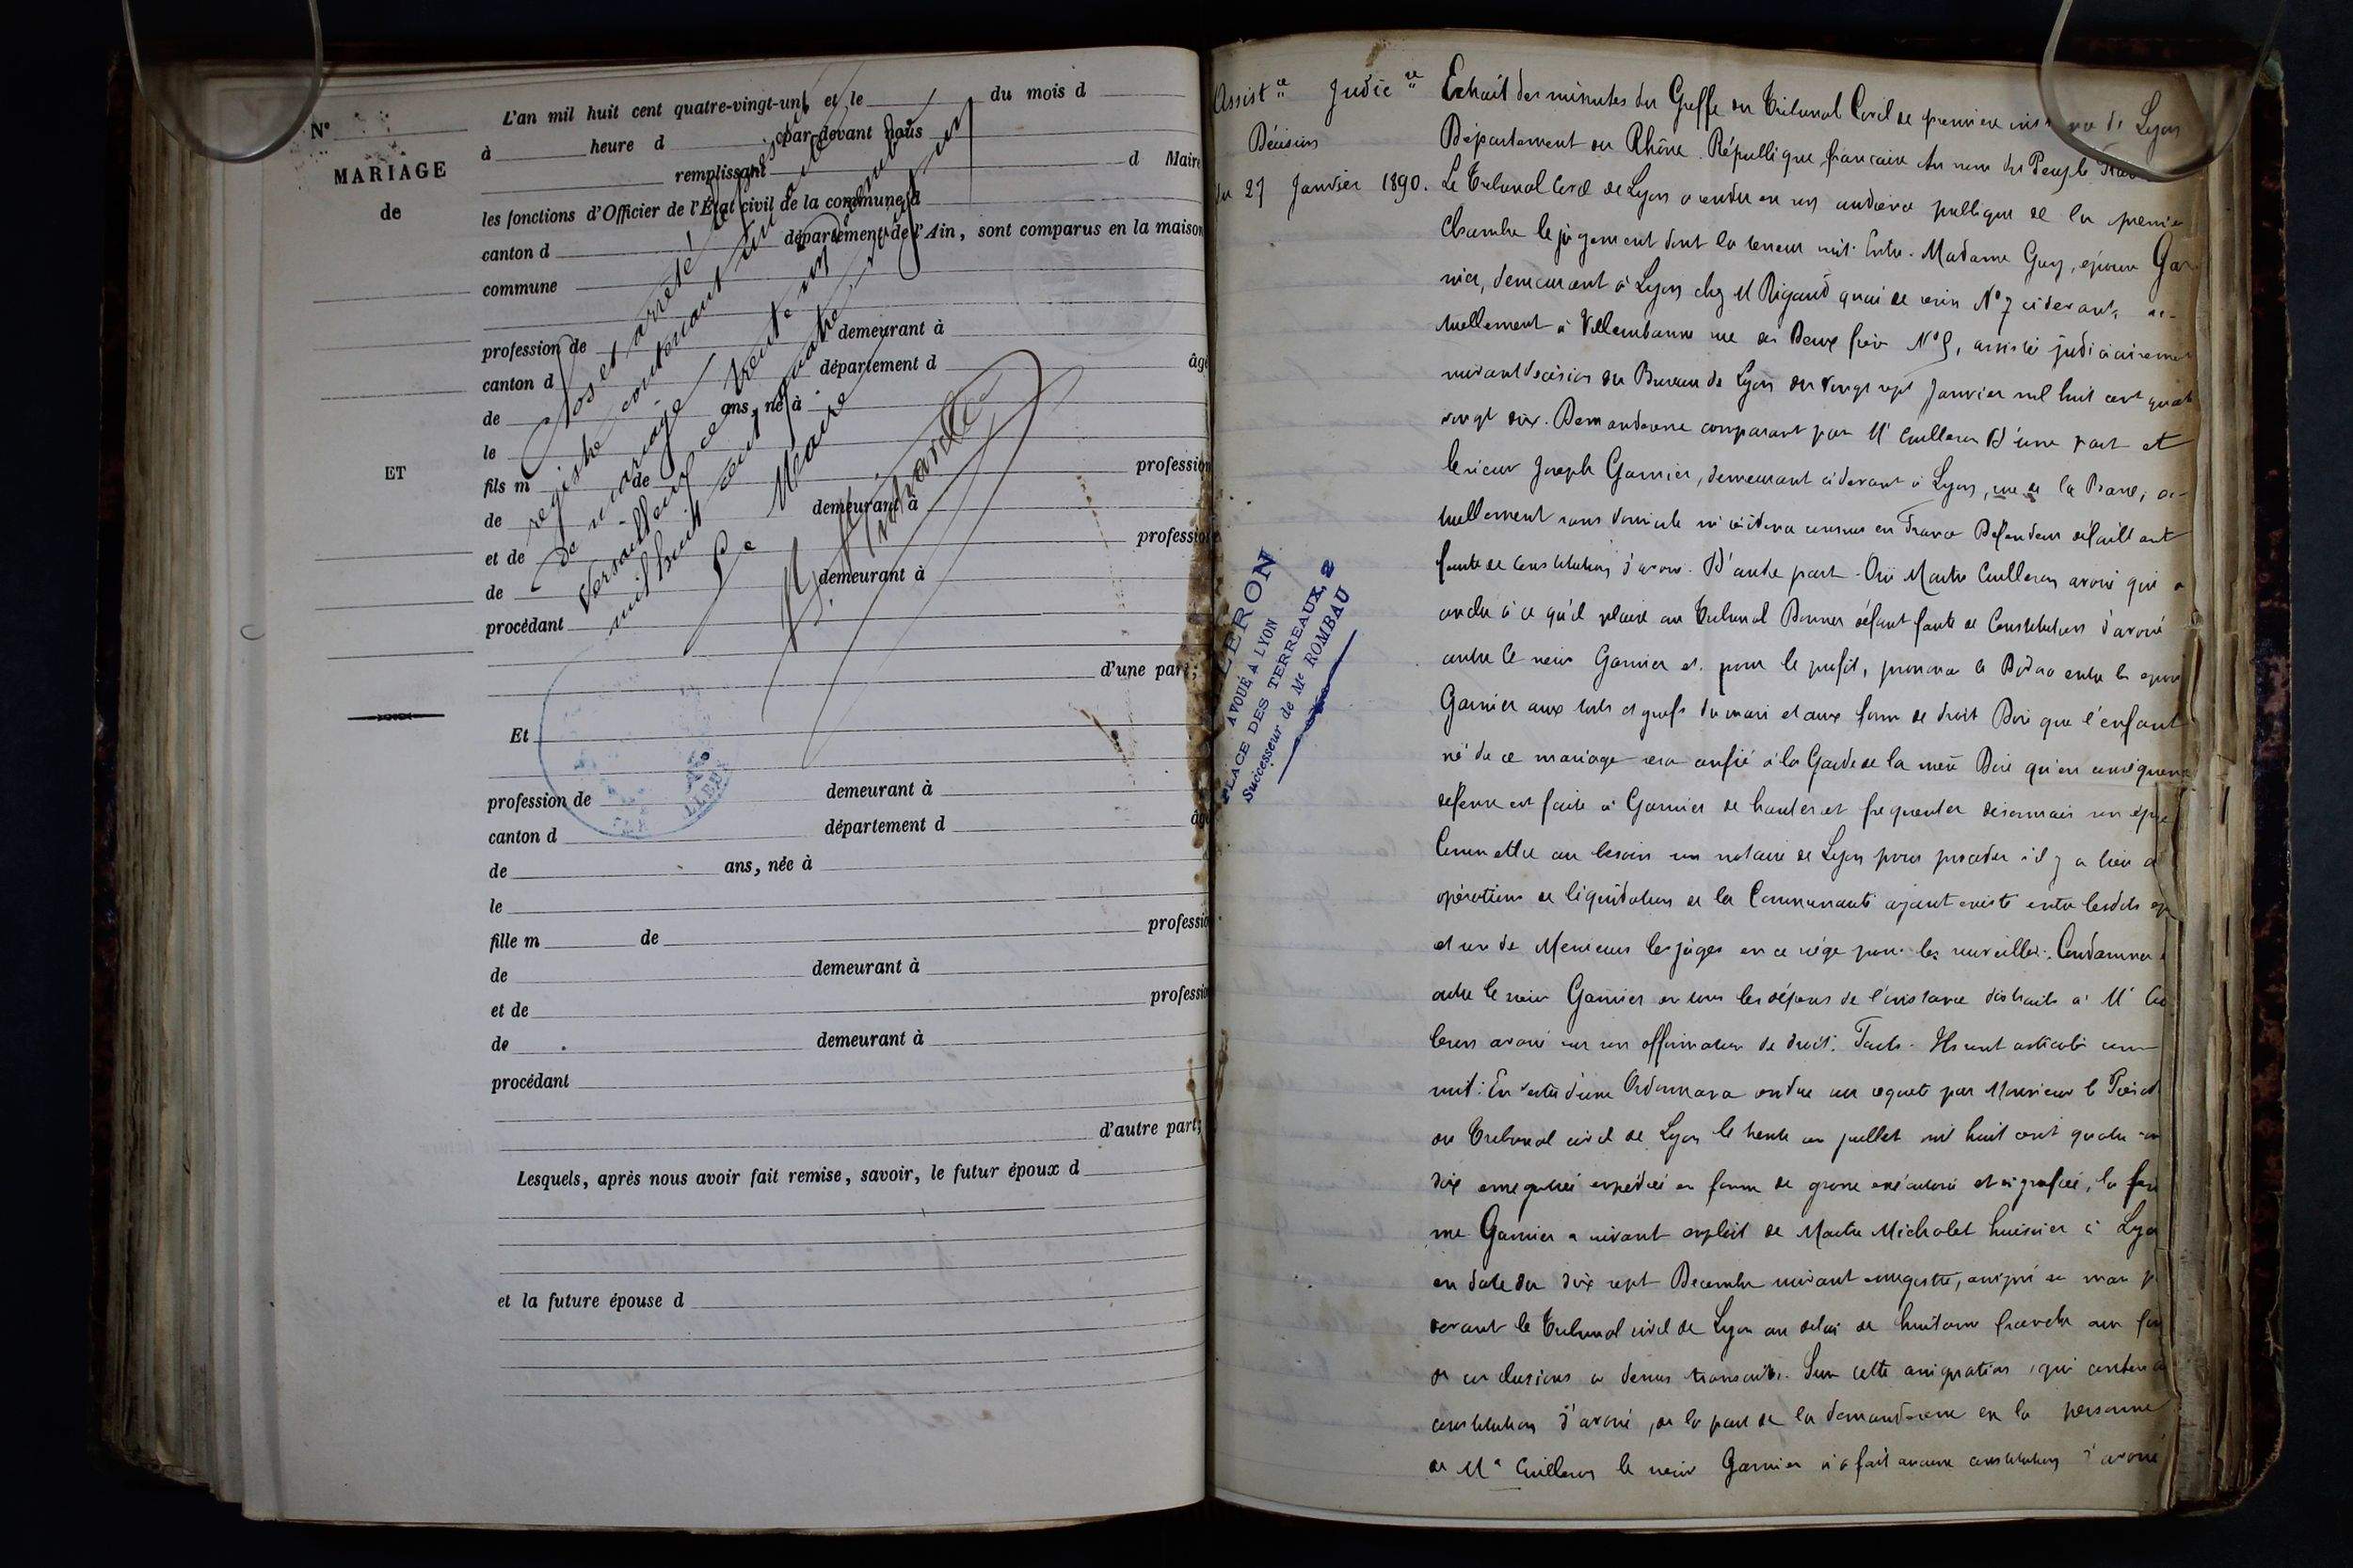 N°
MARIAGE
de
ET
L'an mil huit cent quatre-vingt-un et le du mois d
à heure d par-devant nous
remplissant d Maire
les fonctions d'Officier de l'État civil de la commune d
canton d département de l'Ain, sont comparus en la maison
commune
profession de demeurant à
canton d département d âgé
de ans, né à
le
fils m de profession
de demeurant à
et de profession
de demeurant à
procédant
d'une part;
Et
profession de demeurant à
canton d département d âgé
de ans, née à
le
fille m de profession
de demeurant à
et de profession
de demeurant à
procédant
d'autre part;
Lesquels, après nous avoir fait remise, savoir, le futur époux d
et la future épouse d
Clos et arrêté
registre contenant
de mariage
Versailleux ce trente un
mil huit cent quatre
Le Maire
Assist ce Judic re
Décision
du 27 Janvier 1890.
LERON
AVOUÉ À LYON
PLACE DES TERREAUX, 2
Successeur de Me ROMBAU
Extrait des minutes du Greffe du Tribunal Civil de première de Lyon
Département du Rhône. République française Au nom du Peuple
Le Tribunal Civil de Lyon a rendu en son audience publique de la premie
Chambre le jugement dont la teneur suit. Entre. Madame Guy, épouse Gar
nier, demeurant à Lyon chez M Rigaud quai de N° 7 ci devant, ac-
tuellement à Villeurbanne rue des Deux N° 5, assistée judiciairement
suivant décision du Bureau de Lyon du vingt sept Janvier mil huit cent quatre
vingt dix. Demanderesse comparant par Me Cuilleron D'une part et
le sieur Joseph Garnier, demeurant ci devant à Lyon, rue de la Barre, ac-
tuellement sans domicile ni résidence connus en France Défendeur défaillant
faute de constitution d'avoué. D'autre part. Ouï Maître Cuilleron avoué qui a
conclu à ce qu'il plaise au Tribunal Donner défaut faute de Constitution d'avoué
contre le sieur Garnier et pour le profit, prononcer le Divorce entre les époux
Garnier aux torts et griefs du mari et aux forme de droit Dire que l'enfant
né de ce mariage sera confié à la Garde de la mère Dire qu'en conséquence
défense est faite à Garnier de hanter et fréquenter désormais son épouse
Commettre au besoin un notaire de Lyon pour procéder s'il y a lieu a
opérations de liquidation de la Communauté ayant existé entre lesdits ep
et un de Messieurs les juges en ce siège pour les surveiller. Condamner
outre le sieur Garnier en tous les dépens de l'instance distraits à Me Cu
leron avoué sur son affirmation de droit. Faits. Ils sont articulés com
suit: En vertu d'une Ordonnance rendue sur requête par Monsieur le Présid
du Tribunal civil de Lyon le trente un juillet mil huit cent quatre vin
dix enregistrée expédiée en forme de grosse exécutoire et signifiée, la fem
me Garnier a suivant exploit de Maitre Michalet huissier à Lyon
en date du dix sept Décembre suivant enregistré, assigné son mari p
devant le Tribunal civil de Lyon au délai de huitaine franche aux fin
de conclusions ci dessus transcrites. Sur cette assignation, qui contena
constitution d'avoué, de la part de la demanderesse en la personne
de Me Cuilleron le sieur Garnier n'a fait aucune constitution d'avoué